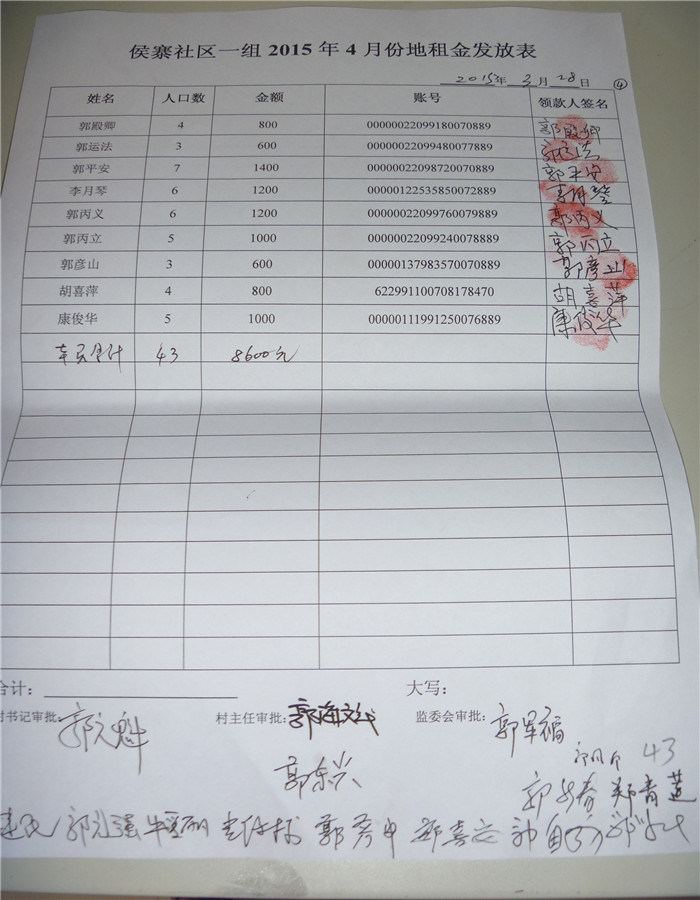 侯寨社区一组 2015 年 4 月份地租金发放表
2015年 3 月 28 日 ④
姓名 人口数 金额 账号 领款人签名
郭殿卿 4 800 00000022099180070889 郭殿卿
郭运法 3 600 00000022099480077889 郭运法
郭平安 7 1400 00000022098720070889 郭平安
李月琴 6 1200 00000122535850072889 李月琴
郭丙义 6 1200 00000022099760079889 郭丙义
郭丙立 5 1000 00000022099240078889 郭丙立
郭彦山 3 600 00000137983570070889 郭彦山
胡喜萍 4 800 622991100708178470 胡喜萍
康俊华 5 1000 00000111991250076889 康俊华
本页合计 43 8600元
合计： 大写：
村书记审批: 村主任审批: 郭海文 监委会审批: 郭军福
郭东兴
43
郭 春 郑青莲
郭 强 郭 郑喜